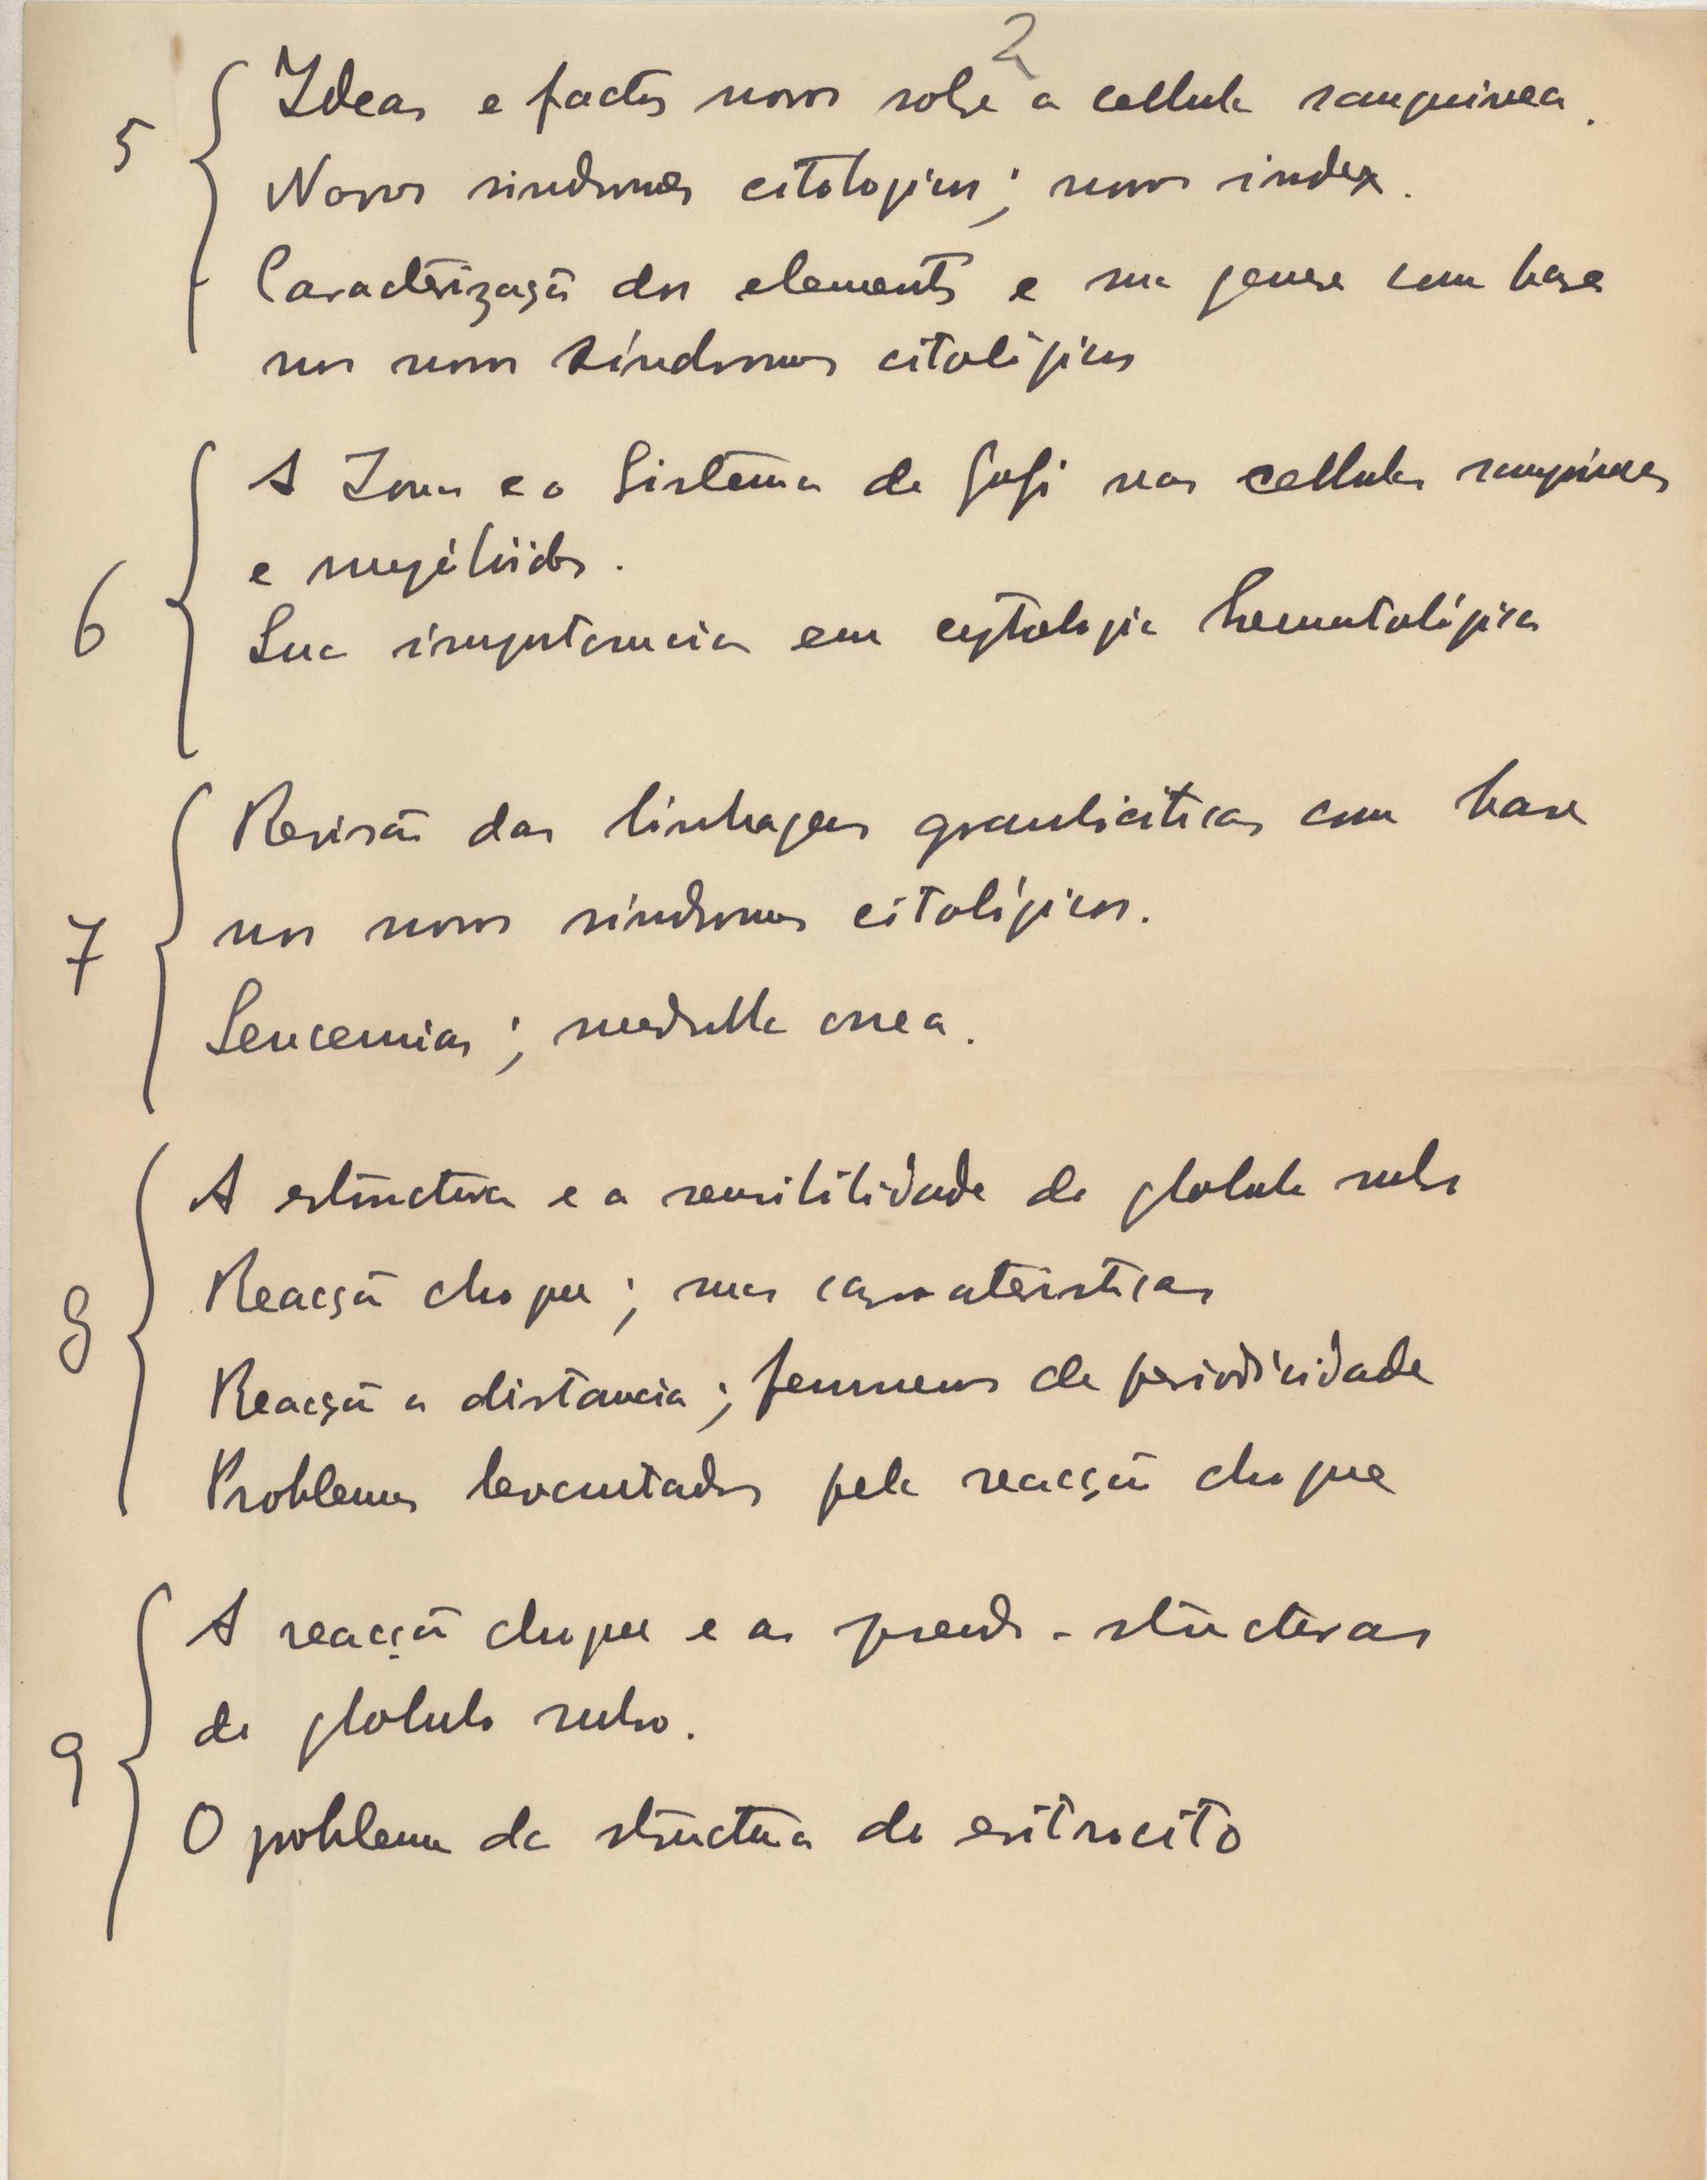 2
5 Ideas e factos novos sobre a cellula sanguinea.
Novos sindromes citologicos; novos index.
Caracterização dos elementos e sua genese com base
nos novos síndromes citológicos
6 A Zona e o Sistema de Golgi nas cellulas sanguineas
e myelóides.
Sua importancia em cytologia hematológica
7 Revisão das linhagens granulociticas com base
nos novos síndromes citológicos.
Leucemias; medulla ossea.
8 A estructura e a sensibilidade do globulo rubro
Reacção choque; suas caracteristicas
Reacção a distancia; fenomenos de periodicidade
Problemas levantados pela reacção choque
9 A reacção choque e as pseudo-structuras
do globulo rubro.
O problema da structura do eritrocito